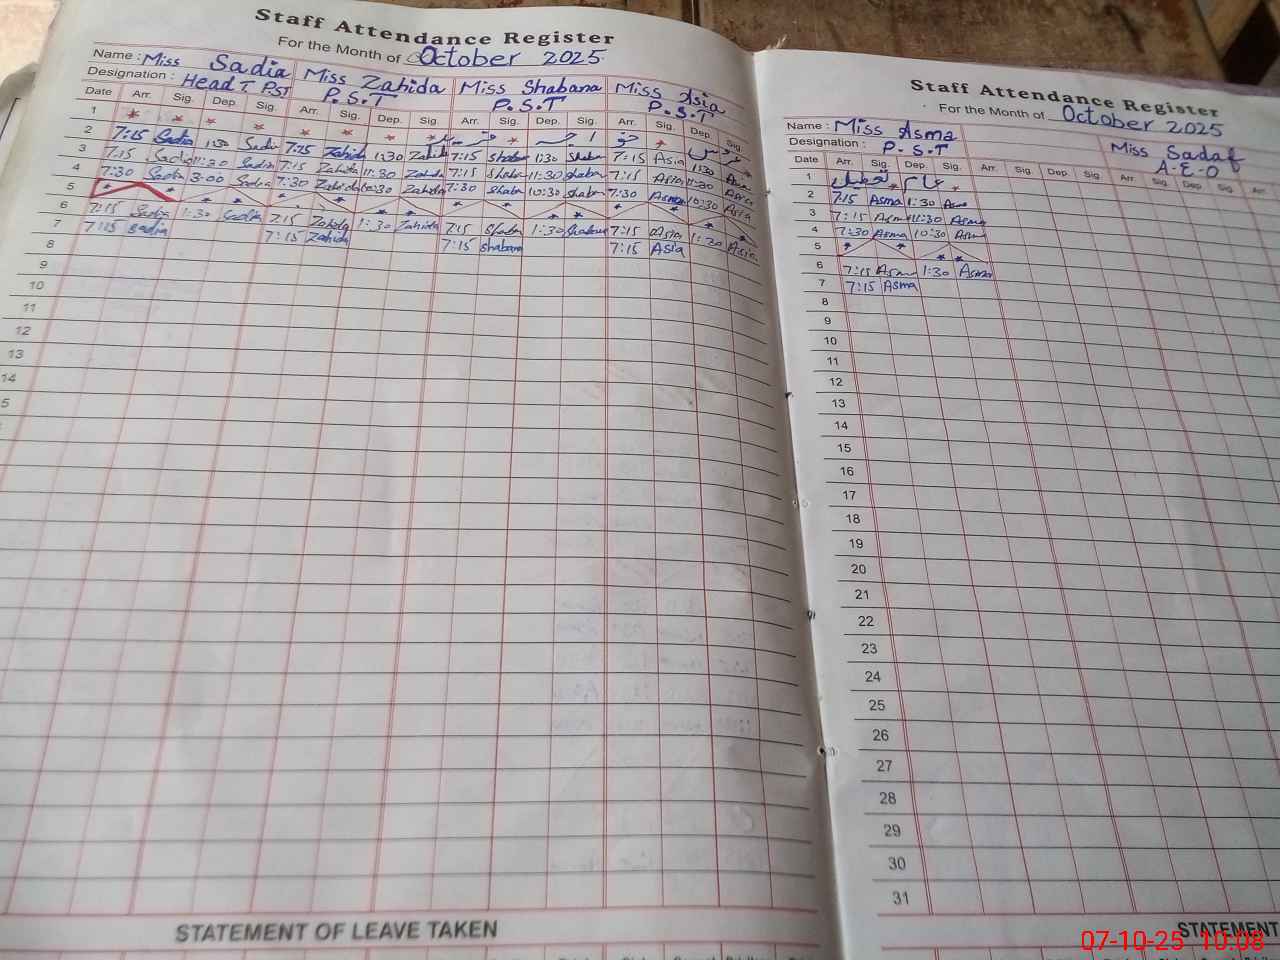 Staff Attendance Register
For the Month of October 2025
Name : Miss Sadia Miss Zahida Miss Shabana Miss Asia
Designation : Head T. P.S.T P.S.T P.S.T P.S.T
Date Arr. Sig. Dep. Sig. Arr. Sig. Dep. Sig. Arr. Sig. Dep. Sig. Arr. Sig. Dep. Sig.
1
2 7:15 Sadia 1:30 Sadia 7:15 Zahida 1:30 Zahida 7:15 Shaba 1:30 Shaba 7:15 Asia 1:30 Asia
3 7:15 Sadia 11:30 Sadia 7:15 Zahida 11:30 Zahida 7:15 Shaba 11:30 Shaba 7:15 Asia 11:30 Asia
4 7:30 Sadia 3:00 Sadia 7:30 Zahida 10:30 Zahida 7:30 Shaba 10:30 Shaba 7:30 10:30 Asia
5
6 7:15 Sadia 1:30 Sadia 7:15 Zahida 1:30 Zahida 7:15 Shaba 1:30 Shabana 7:15 Asia 1:30 Asia
7 7:15 Sadia 7:15 Zahida 7:15 Shabana 7:15 Asia
8
9
10
11
12
13
14
5
STATEMENT OF LEAVE TAKEN
Staff Attendance Register
For the Month of October 2025
Name : Miss Asma Miss Sadaf
Designation : P.S.T A.E.O
Date Arr. Sig. Dep. Sig. Arr. Sig. Dep. Sig. Arr. Sig. Dep. Sig. Arr.
1 عام تعطیل
2 7:15 Asma 1:30 Asma
3 7:15 Asma 11:30 Asma
4 7:30 Asma 10:30 Asma
5
6 7:15 Asma 1:30 Asma
7 7:15 Asma
8
9
10
11
12
13
14
15
16
17
18
19
20
21
22
23
24
25
26
27
28
29
30
31
STATEMENT
07-10-25 10:08